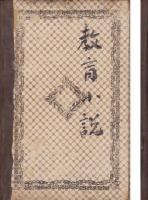 教育小説